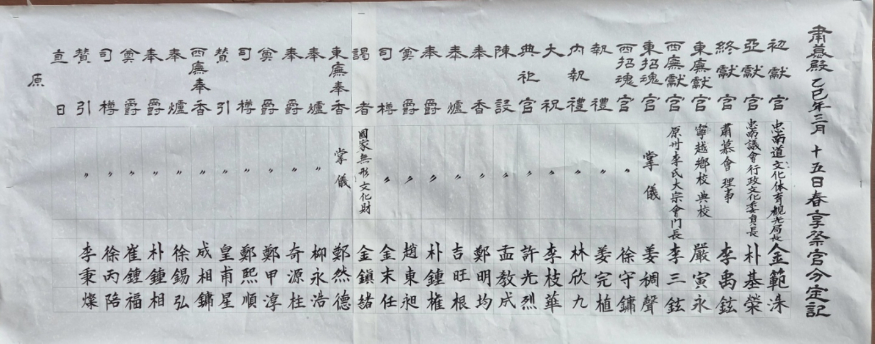 肅慕殿 乙巳年三月 十五日春享祭官分定記
初獻官 忠南道文化体育觀光局長 金範洙
亞獻官 忠南議會行政文化委員長 朴基榮
終獻官 肅慕會 理事 李禹鉉
東廡獻官 寧越鄉校 典校 嚴寅永
西廡獻官 原州李氏大宗會門長 李三鉉
東招魂官 掌儀 姜稠聲
西招魂官 〃 徐守鏞
執禮 〃 姜完植
內執禮 〃 林欣九
大祝 〃 李枝華
典祀官 〃 許光烈
陳設 〃 孟敎成
奉香 〃 鄭明均
奉爐 〃 吉旺根
奉爵 〃 朴鍾權
奠爵 〃 趙東昶
司樽 〃 金末任
謁者 國家無形文化財 金鎭緖
東廡奉香 掌儀 鄭然德
奉爐 〃 柳永浩
奉爵 〃 奇源柱
奠爵 〃 鄭甲淳
司樽 〃 鄭熙順
贊引 〃 皇甫星
西廡奉香 〃 成相鏞
奉爐 〃 徐錫弘
奉爵 〃 朴鍾相
奠爵 〃 崔鍾福
司樽 〃 徐丙陪
贊引 〃 李秉燦
直日
原